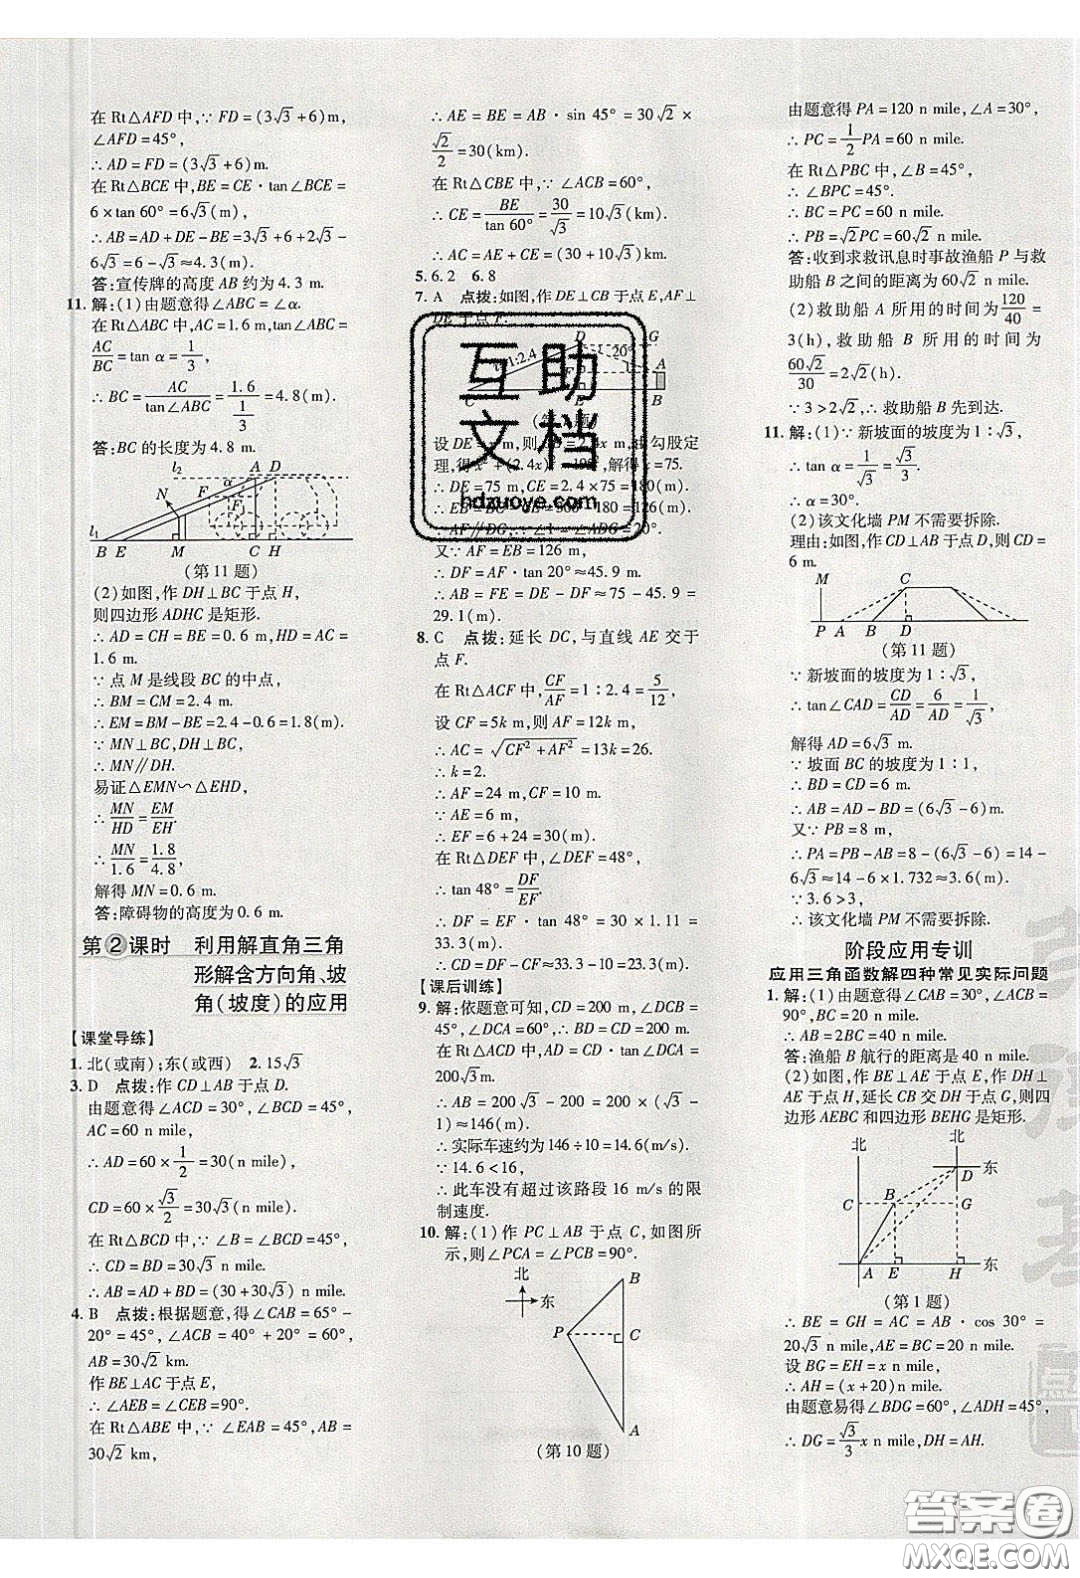 在 Rt△AFD 中,∵ FD=(3√3+6)m,
∠AFD=45°,
∴ AD=FD=(3√3+6) m.
在 Rt△BCE 中,BE=CE·tan∠BCE=
6×tan 60°=6√3(m),
∴ AB=AD+DE-BE=3√3+6+2√3-
6√3=6-√3≈4.3(m).
答:宣传牌的高度 AB 约为 4.3 m.
11. 解:(1)由题意得∠ABC=∠α.
在 Rt△ABC 中,AC=1.6 m,tan∠ABC=
AC/BC=tan α=1/3,
∴ BC=AC/tan∠ABC=1.6/(1/3)=4.8(m).
答:BC 的长度为 4.8 m.
l₂ A D
N F α
F
l₁
B E M C H
(第 11 题)
(2)如图,作 DH⊥BC 于点 H,
则四边形 ADHC 是矩形.
∴ AD=CH=BE=0.6 m,HD=AC=
1.6 m.
∵ 点 M 是线段 BC 的中点,
∴ BM=CM=2.4 m.
∴ EM=BM-BE=2.4-0.6=1.8(m).
∵ MN⊥BC,DH⊥BC,
∴ MN∥DH.
易证△EMN∽△EHD,
∴ MN/HD=EM/EH.
∴ MN/1.6=1.8/4.8,
解得 MN=0.6 m.
答:障碍物的高度为 0.6 m.
第②课时 利用解直角三角
形解含方向角、坡
角(坡度)的应用
【课堂导练】
1. 北(或南);东(或西) 2. 15√3
3. D 点拨:作 CD⊥AB 于点 D.
由题意得∠ACD=30°,∠BCD=45°,
AC=60 n mile,
∴ AD=60×1/2=30(n mile),
CD=60×√3/2=30√3(n mile).
在 Rt△BCD 中,∵ ∠BCD=45°,
∴ CD=BD=30√3 n mile.
∴ AB=AD+BD=(30+30√3)n mile.
4. B 点拨:根据题意,得∠CAB=65°-
20°=45°,∠ACB=40°+20°=60°,
AB=30√2 km.
作 BE⊥AC 于点 E,
∴ ∠AEB=∠CEB=90°.
在 Rt△ABE 中,∵ ∠EAB=45°,AB=
30√2 km,
∴ AE=BE=AB·sin 45°=30√2×
√2/2=30(km).
在 Rt△CBE 中,∵ ∠ACB=60°,
∴ CE=BE/tan 60°=30/√3=10√3(km),
∴ AC=AE+CE=(30+10√3)km.
5. 6.2 6. 8
7. A 点拨:如图,作 DE⊥CB 于点 E,AF⊥
DE 于点 F.
D G
i=1:2.4 20°
F A
C E B
(第 7 题)
设 DE=x m,则 CE=2.4x m,由勾股定
理,得 x²+(2.4x)²=195²,解得 x=75.
∴ DE=75 m,CE=2.4x=180(m).
∴ EB=BC-CE=306-180=126(m).
∵ AF∥DG,∴ ∠1=∠ADG=20°.
又∵ AF=EB=126 m,
∴ DF=AF·tan 20°≈45.9 m.
∴ AB=FE=DE-DF≈75-45.9=
29.1(m).
8. C 点拨:延长 DC,与直线 AE 交于
点 F.
在 Rt△ACF 中,CF/AF=1∶2.4=5/12,
设 CF=5k m,则 AF=12k m,
∴ AC=√(CF²+AF²)=13k=26.
∴ k=2.
∴ AF=24 m,CF=10 m.
∵ AE=6 m,
∴ EF=6+24=30(m).
在 Rt△DEF 中,∠DEF=48°,
∴ tan 48°=DF/EF.
∴ DF=EF·tan 48°=30×1.11=
33.3(m).
∴ CD=33.3-10=23.3(m).
【课后训练】
9. 解:依题意可知,CD=200 m,∠BCD=
45°,∠DCA=60°,∴ BD=CD=200 m.
在 Rt△ADC 中,AD=CD×tan∠DCA=
200√3 m.
∴ AB=200√3-200=200×(√3-
1)≈146(m).
∴ 实际车速约为 146÷10=14.6(m/s).
∵ 14.6<16,
∴ 此车没有超过该路段 16 m/s 的限
制速度.
10. 解:(1)作 PC⊥AB 于点 C,如图所
示,则∠PCA=∠PCB=90°.
北
东
B
P C
A
(第 10 题)
由题意得 PA=120 n mile,∠A=30°,
∴ PC=1/2PA=60 n mile.
在 Rt△PBC 中,
∵ ∠BPC=45°.
∴ BC=PC=60 n mile.
∴ PB=√2PC=60√2 n mile.
答:收到求救讯息时事故渔船 P 与救
助船 B 之间的距离为 60√2 n mile.
(2)救助船 A 所用的时间为120/40=
3(h),救助船 B 所用的时间为
60√2/30=2√2(h).
∵ 3>2√2,∴ 救助船 B 先到达.
11. 解:(1)∵ 新坡面的坡度为 1∶√3,
∴ tan α=1/√3=√3/3.
∴ α=30°.
(2)该文化墙 PM 不需要拆除.
理由:如图,作 CD⊥AB 于点 D,则 CD=
6 m.
M C
P A B D
(第 11 题)
∵ 新坡面的坡度为 1∶√3,
∴ tan∠CAD=CD/AD=6/AD=1/√3,
解得 AD=6√3 m.
∵ 坡面 BC 的坡度为 1∶1,
∴ BD=CD=6 m.
∴ AB=AD-BD=(6√3-6)m.
又∵ PB=8 m,
∴ PA=PB-AB=8-(6√3-6)=14-
6√3≈14-6×1.732≈3.6(m).
∵ 3.6>3,
∴ 该文化墙 PM 不需要拆除.
阶段应用专训
应用三角函数解四种常见实际问题
1. 解:(1)由题意得∠CAB=30°,∠ACB=
90°,BC=20 n mile,
∴ AB=2BC=40 n mile.
答:渔船 B 航行的距离是 40 n mile.
(2)如图,作 BE⊥AE 于点 E,作 DH⊥
AE 于点 H,延长 CB 交 DH 于点 G,则四
边形 AEBC 和四边形 BEHG 是矩形.
北 北
东
D
C B G
A E H 东
(第 1 题)
∴ BE=GH=AC=AB·cos 30°=
20√3 n mile,AE=BC=20 n mile.
设 BG=EH=x n mile,
∴ AH=(x+20)n mile.
由题意易得∠BDG=60°,∠ADH=45°,
∴ DG=√3/3x n mile,DH=AH.
互助
文档
hdzuoye.com
答案圈
MXQE.COM